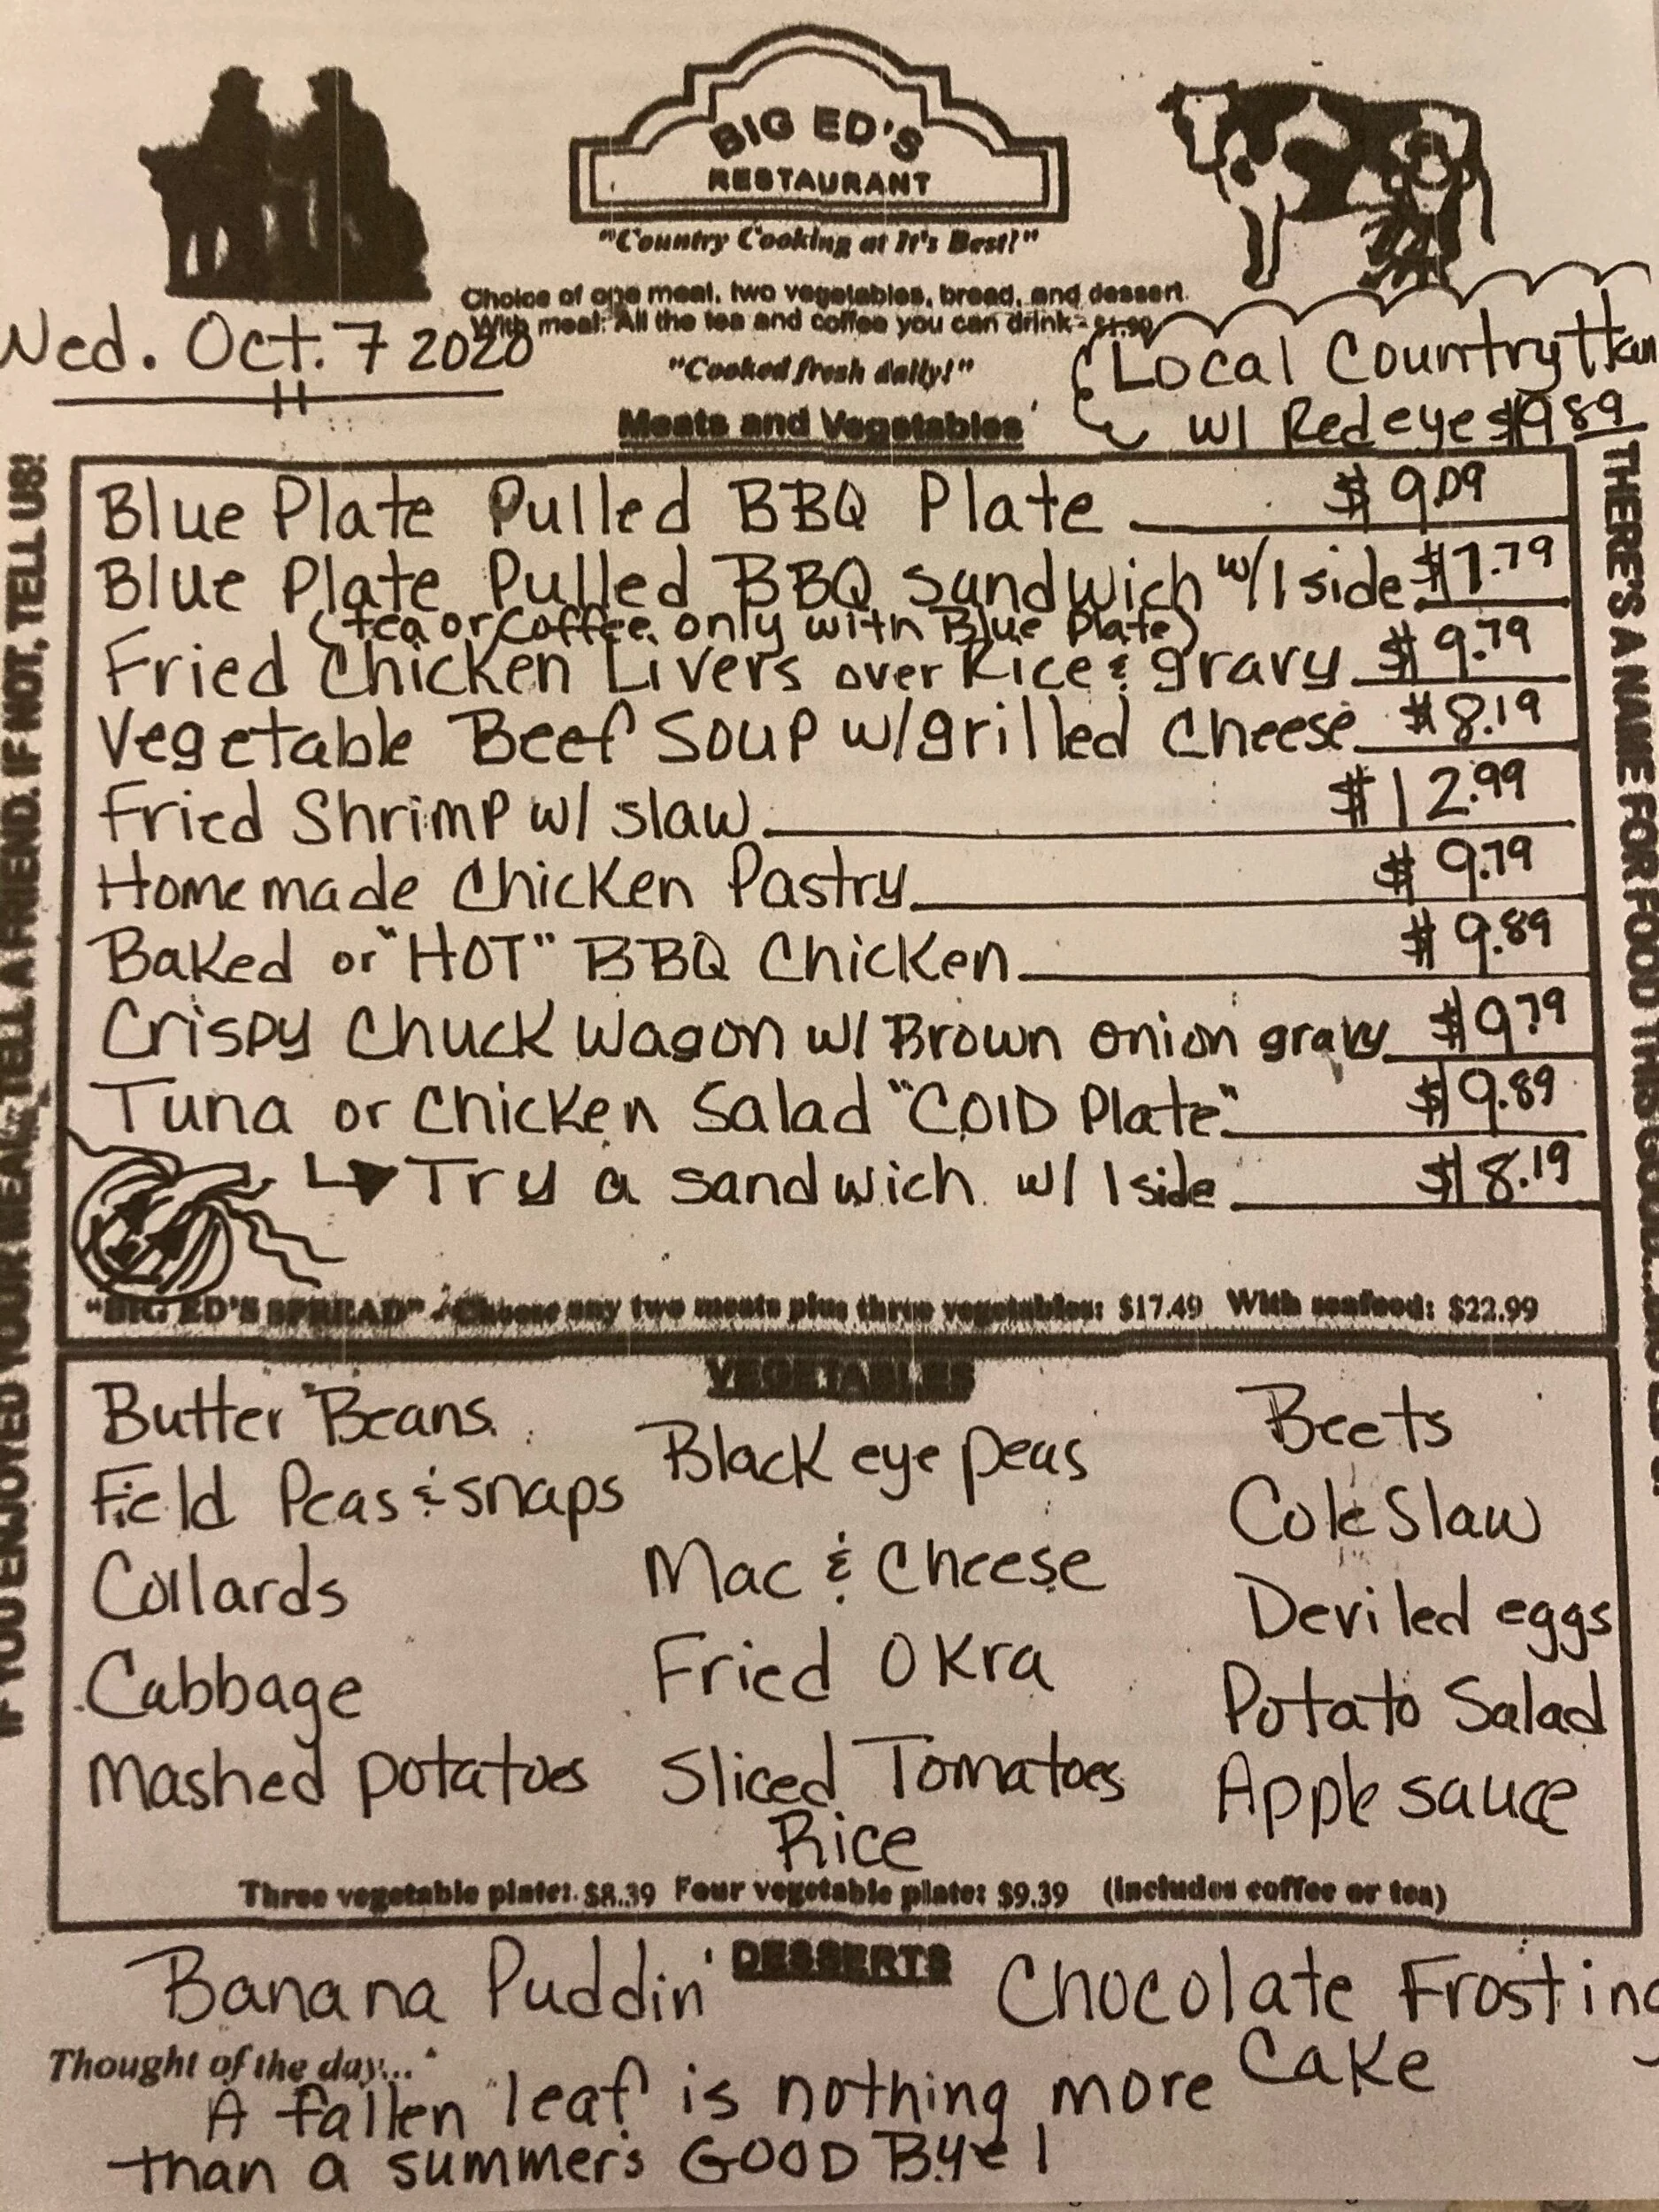 BIG ED'S
RESTAURANT
"Country Cooking at It's Best!"
Choice of one meat, two vegetables, bread, and dessert.
With meal: All the tea and coffee you can drink - $1.99
Wed. Oct. 7 2020
"Cooked fresh daily!"
Local Country Ham
w/ Redeye $9.89
Meats and Vegetables
Blue Plate Pulled BBQ Plate $9.09
Blue Plate Pulled BBQ Sandwich w/1 side $7.79
(tea or coffee only with Blue Plate)
Fried Chicken Livers over Rice & gravy $9.79
Vegetable Beef Soup w/grilled Cheese $8.19
Fried Shrimp w/ slaw $12.99
Homemade Chicken Pastry $9.79
Baked or "HOT" BBQ Chicken $9.89
Crispy Chuck Wagon w/ Brown onion gravy $9.79
Tuna or Chicken Salad "COLD Plate" $9.89
Try a sandwich w/ 1 side $8.19
"BIG ED'S SPREAD" - Choose any two meats plus three vegetables: $17.49 With seafood: $22.99
IF YOU ENJOYED YOUR MEAL, TELL A FRIEND. IF NOT, TELL US!
THERE'S A NAME FOR FOOD THIS GOOD...
VEGETABLES
Butter Beans
Field Peas & snaps
Collards
Cabbage
Mashed potatoes
Black eye peas
Mac & Cheese
Fried Okra
Sliced Tomatoes
Rice
Beets
Cole Slaw
Deviled eggs
Potato Salad
Apple sauce
Three vegetable plate: $8.39 Four vegetable plate: $9.39 (Includes coffee or tea)
DESSERTS
Banana Puddin'
Chocolate Frosting
Cake
Thought of the day...
A fallen leaf is nothing more
than a summer's GOOD Bye!